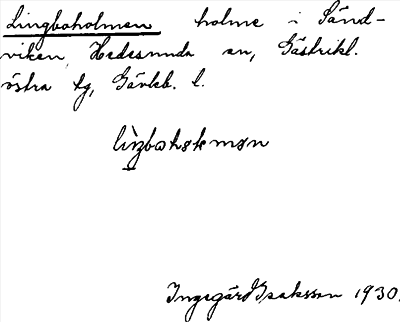 Lingboholmen holme i Sand-
viken, Hedesunda sn, Gästrikl.
östra tg, Gävleb. l.
Ingegärd Isaksson 1930.